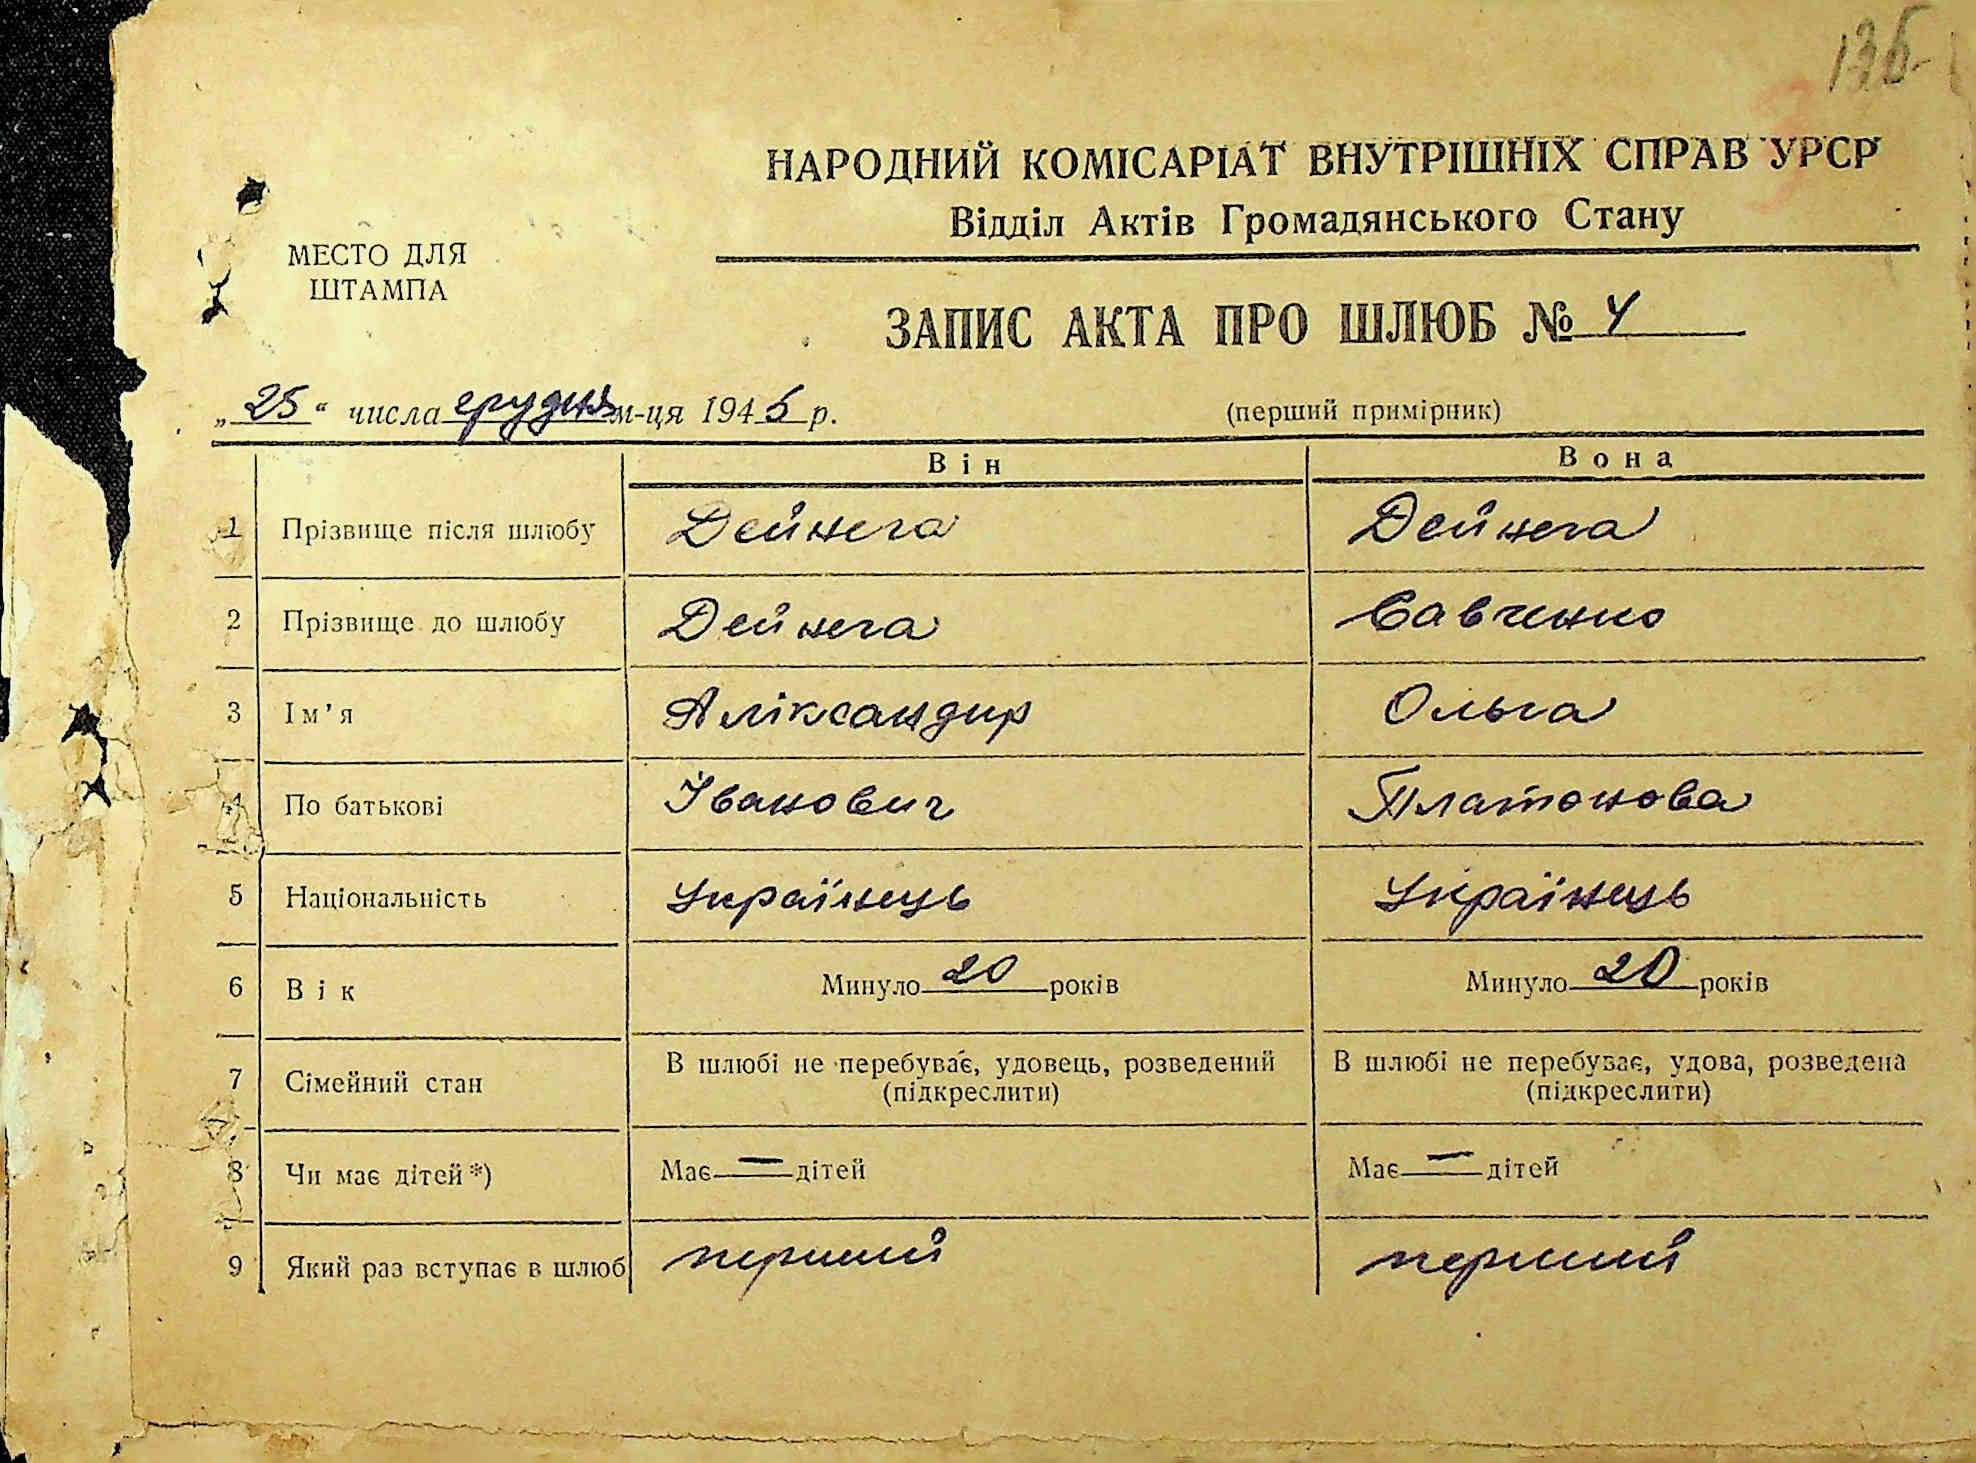 135
НАРОДНИЙ КОМІСАРІАТ ВНУТРІШНІХ СПРАВ УРСР
Відділ Актів Громадянського Стану
МЕСТО ДЛЯ
ШТАМПА
ЗАПИС АКТА ПРО ШЛЮБ № 4
„25“ числа грудня м-ця 1945 р.
(перший примірник)
Він Вона
1 Прізвище після шлюбу Дейнега Дейнега
2 Прізвище до шлюбу Дейнега Савченко
3 Ім’я Аліксандир Ольга
4 По батькові Іванович Платонова
5 Національність Українець Українець
6 Вік Минуло 20 років Минуло 20 років
7 Сімейний стан В шлюбі не перебуває, удовець, розведений (підкреслити) В шлюбі не перебуває, удова, розведена (підкреслити)
8 Чи має дітей *) Має — дітей Має — дітей
9 Який раз вступає в шлюб перший перший